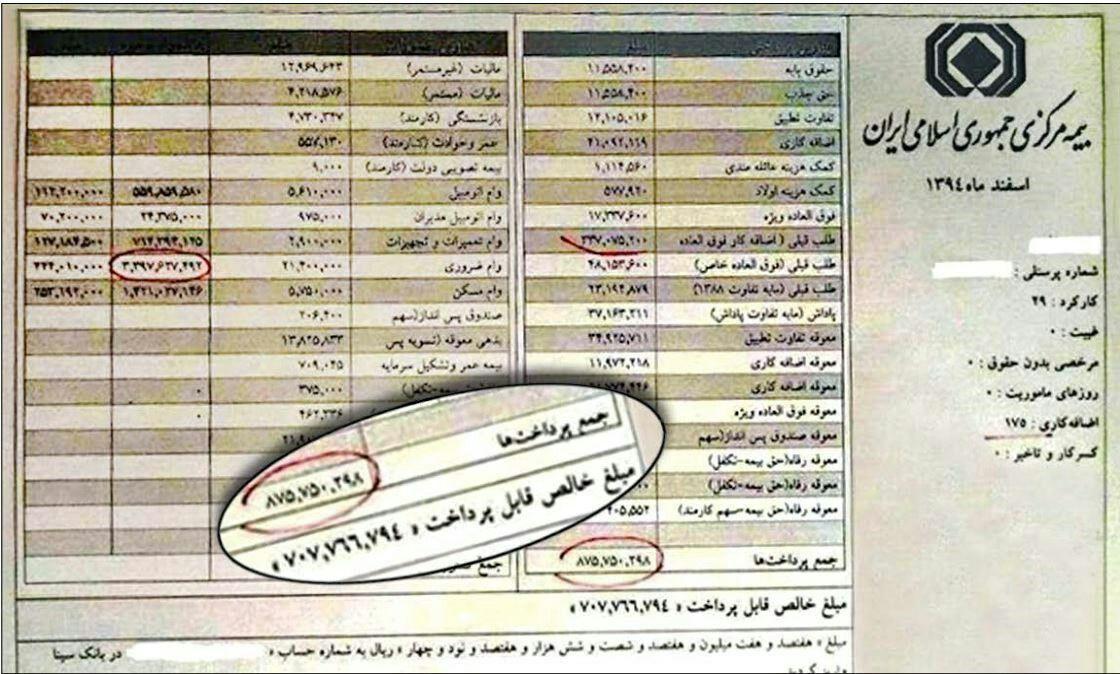 بیمه مرکزی جمهوری اسلامی ایران
اسفند ماه ۱۳۹٤
شماره پرسنلی :
کارکرد : ۲۹
غیبت : ۰
مرخصی بدون حقوق : ۰
روزهای ماموریت : ۰
اضافه کاری : ۱۷۵
کسر کار و تاخیر : ۰
مبلغ
حقوق پایه ۱۱,۵۵۸,۴۰۰
حق جذب ۱۱,۵۵۸,۴۰۰
تفاوت تطبیق ۱۲,۱۰۵,۰۱۶
اضافه کاری ۲۱,۰۹۲,۱۱۹
کمک هزینه عائله مندی ۱,۱۱۴,۵۶۰
کمک هزینه اولاد ۵۷۷,۹۲۰
فوق العاده ویژه ۱۷,۳۳۷,۶۰۰
طلب قبلی ( اضافه کار فوق العاده ۳۳۷,۰۷۵,۲۰۰
طلب قبلی (فوق العاده خاص) ٤۸,۱۵۳,۶۰۰
طلب قبلی (مابه تفاوت ۱۳۸۸) ۲۳,۱۹٤,۸۷۹
پاداش (مابه تفاوت پاداش) ۳۷,۱۶۳,۲۱۱
معوقه تفاوت تطبیق ۳٤,۹۲۵,۷۱۱
معوقه اضافه کاری ۱۱,۹۷۲,۲۱۸
معوقه اضافه کاری
معوقه فوق العاده ویژه
معوقه صندوق پس انداز(سهم
معوقه رفاه(حق بیمه-تکفل)
معوقه رفاه(حق بیمه-تکفل)
معوقه رفاه(حق بیمه-سهم کارمند) ٤۰۵,۵۵۲
جمع پرداخت‌ها ۸۷۵,۷۵۰,۲۹۸
مبلغ
مالیات (غیرمستمر) ۱۲,۹۶۹,۶٤۳
مالیات (مستمر) ٤,۲۱۸,۵۷۶
بازنشستگی (کارمند) ٤,۷۳۰,۳٤۷
عمر و حوادث (کارمند) ۵۵۷,۱۳۰
بیمه تصویبی دولت (کارمند) ۹,۰۰۰
وام اتومبیل ۵,۶۱۰,۰۰۰ ۵۵۹,۸۵۹,۵۸۰ ۱۱۲,۲۰۰,۰۰۰
وام اتومبیل مدیران ۹۷۵,۰۰۰ ۲٤,۳۷۵,۰۰۰ ۷۰,۲۰۰,۰۰۰
وام تعمیرات و تجهیزات ۲,۹۰۰,۰۰۰ ۷۱۲,۲۹۳,۱۲۵ ۱۲۷,۱۸٤,۵۰۰
وام ضروری ۲۱,٤۰۰,۰۰۰ ۳,۳۹۷,۶۳۷,٤۹۲ ۳٤٤,۰۱۰,۰۰۰
وام مسکن ۵,۷۵۰,۰۰۰ ۱,٤۲۱,۰۳۷,۱٤۶ ۲۵۳,۱۹۲,۰۰۰
صندوق پس انداز(سهم ۲۰۶,٤۰۰
بدهی معوقه (تسویه پس ۱۳,۸۲۵,۸۳۳
بیمه عمر وتشکیل سرمایه ۷۰۹,۰٤۵
۳۷۵,۰۰۰ ۰
٤۶۲,۳۳۶ ۰
جمع پرداخت‌ها
۸۷۵,۷۵۰,۲۹۸
مبلغ خالص قابل پرداخت « ۷۰۷,۷۶۶,۷۹٤ »
مبلغ خالص قابل پرداخت « ۷۰۷,۷۶۶,۷۹٤ »
مبلغ « هفتصد و هفت میلیون و هفتصد و شصت و شش هزار و هفتصد و نود و چهار » ریال به شماره حساب « » در بانک سینا